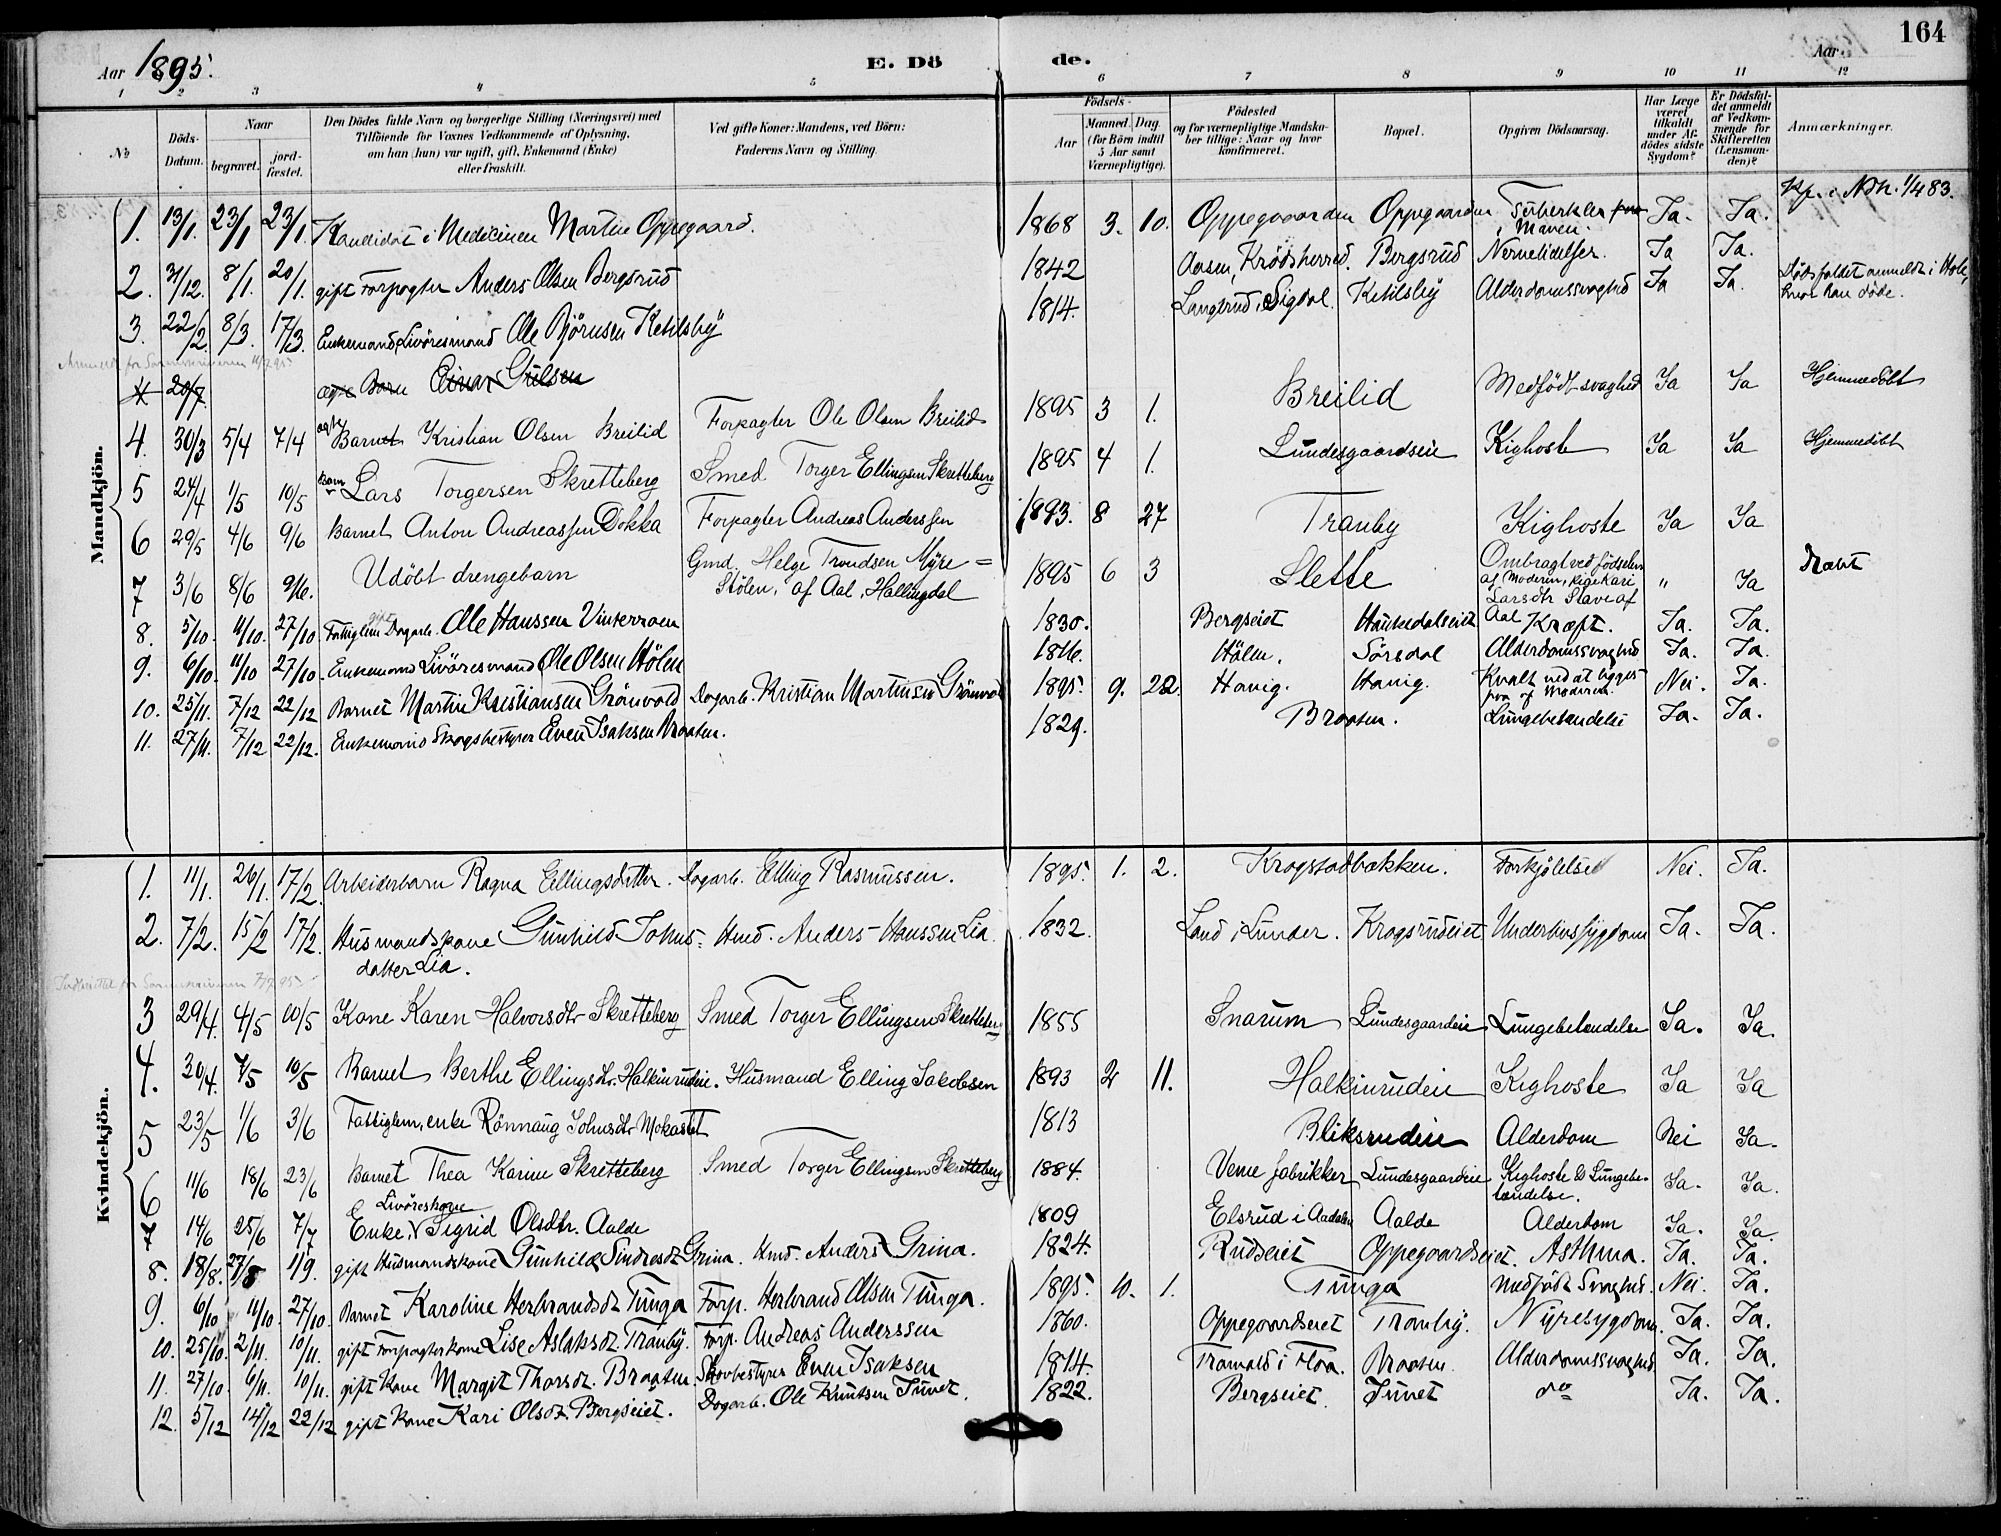 Aar 1895. E. Döde. Aar 164
1 2 3 4 5 6 7 8 9 10 11 12
No
Döds-Datum.
Naar
begravet. jordfæstet.
Den Dödes fulde Navn og borgerlige Stilling (Næringsvei) med
Tilföiende for Voxnes Vedkommende af Oplysning,
om han (hun) var ugift, gift, Enkemand (Enke)
eller fraskilt.
Ved gifte Koner: Mandens, ved Börn:
Faderens Navn og Stilling.
Födsels-
Aar Maaned. Dag.
(for Börn indtil
5 Aar samt
Værnepligtige).
Födested
og for værnepligtige Mandskaber tillige: Naar og hvor
konfirmeret.
Bopæl.
Opgiven Dödsaarsag.
Har Læge
været
tilkaldt
under Afdödes sidste
Sygdom?
Er Dödsfaldet anmeldt
af Vedkommende for
Skifteretten
(Lensmanden)?
Anmærkninger.
Mandkjön.
1. 13/1. 23/1 23/1. Kandidat i Medicinen Martin Oppegaard. 1868 3. 10. Oppegaarden Oppegaarden Tuberkler i Maven. Ja. Ja.
2. 31/12. 8/1. 20/1. gift Forpagter Anders Olsen Bergsrud 1842 Aasen, Krödsherred. Bergsrud Nervelidelser. Ja Ja. Dödsfaldet anmeldt i Hole, hvor han döde.
3. 22/2. 8/3. 17/3. Enkemand Livöresmand Ole Björnsen Ketilsby 1814. Langerud i Sigdal. Ketilsby Alderdomssvaghed Ja Ja.
4 20/7. ægte Barn Einar Gulsen
4. 30/3 5/4 7/4 ægte Barnet Kristian Olsen Breilid Forpagter Ole Olsen Breilid 1895 3 1. Breilid Medfödt svaghed Ja Ja Hjemmedöbt
5 24/4 1/5 10/5 Barn Lars Torgersen Skretteberg Smed Torger Ellingsen Skretteberg 1895 4 1. Lundesgaardseie Kighoste Ja Ja Hjemmedöbt
6 29/5 4/6 9/6 Barnet Anton Andreassen Dokka Forpagter Andreas Anderssen 1893. 8 27 Tranby Kighoste Ja Ja
7 3/6 8/6 9/6. Udöbt drengebarn Gmd. Helge Trondsen Myre=Stölen, af Aal, Hallingdal 1895 6 3 Slette Ombragt ved födselen af Moderen, pige Kari Larsdtr Slave af Aal " Ja Dræbt
8. 5/10. 11/10. 27/10 Fattiglem gift Dagarb. Ole Hanssen Vinterroen 1830. Bergseiet Haukedalseiet Kræft. Ja. Ja.
9. 6/10. 11/10 27/10. Enkemand Livöresmand Ole Olsen Hölen 1816. Hölen. Sörsdal Alderdomssvaghed Ja. Ja.
10. 25/11. 7/12 22/12 Barnet Martin Kristiansen Grönvold Dagarb. Kristian Martinsen Grönvold 1895. 9. 22. Hanig. Hanig. Kvalt ved at ligges paa af Moderen. Nei. Ja.
11. 27/11. 7/12 22/12. Enkemand Skogbestyrer Even Isaksen Braaten. 1829. Braaten. Lungebetændelse Ja. Ja.
Kvindekjön.
1. 11/1. 26/1. 17/2. Arbeiderbarn Ragna Ellingsdatter. Dagarb. Elling Rasmussen. 1895. 1. 2. Krogstadbakken. Forkjölelse Nei. Ja.
2. 7/2. 15/2 17/2. Husmandskone Gunhild Johns- Hmd. Anders Hanssen Lia. 1832. Land i Lunder. Krogsrudeiet Underlivssygdom Ja. Ja.
datter Lia.
3 29/4. 4/5 10/5 Kone Karen Halvorsdtr Skretteberg Smed Torger Ellingsen Skretteberg 1855 Snarum Lundesgaardeie Lungebetændelse Ja. Ja.
4. 30/4. 7/5 10/5 Barnet Berthe Ellingsdtr. Halkinrudeie. Husmand Elling Jakobsen 1893 2 11. Halkinrudeie Kighoste Ja Ja
5 23/5 1/6 3/6 Fattiglem, enke Rönnaug Johnsdtr Mokastet 1813 Bliksrudeie Alderdom Nei Ja.
6 11/6 18/6 23/6 Barnet Thea Karine Skretteberg Smed Torger Ellingsen Skretteberg 1884. Veme fabrikker Lundesgaardeie Kighoste & Lungebetændelse. Ja. Ja.
7 14/6 25/6 7/7 Enke, Livöreskone Sigrid Olsdtr. Aalde 1809 Elsrud i Aadalen Aalde Alderdom Ja. Ja.
8. 18/8. 27/8 1/9. gift Husmandskone Gunhild Sindresdt Grina. Hmd. Anders Grina. 1824. Rudseiet Oppegaardseiet. Asthma. Ja. Ja.
9. 6/10 11/10. 27/10. Barnet Karoline Herbrandsdt Tunga Forp. Herbrand Olsen Tunga. 1895. 10. 1. Tunga Medfödt Svaghed. Nei. Ja.
10. 25/10. 2/11. 10/11. gift Forpagterkone Lise Aslaksdt. Tranby. Forp. Andreas Anderssen 1860. Oppegaardseiet Tranby. Nyresygdom. Ja. Ja.
11. 27/10. 6/11. 10/11. gift Kone Margit Thorsdt. Braaten. Skovbestyrer Even Isaksen 1814. Tramald i Flaa. Braaten. Alderdomssvaghed. Ja. Ja.
12. 5/12 14/12 22/12 gift Kone Kari Olsdt. Bergseiet. Dagarb. Ole Knutsen Juvet. 1822. Bergseiet. Juvet do Ja. Ja.